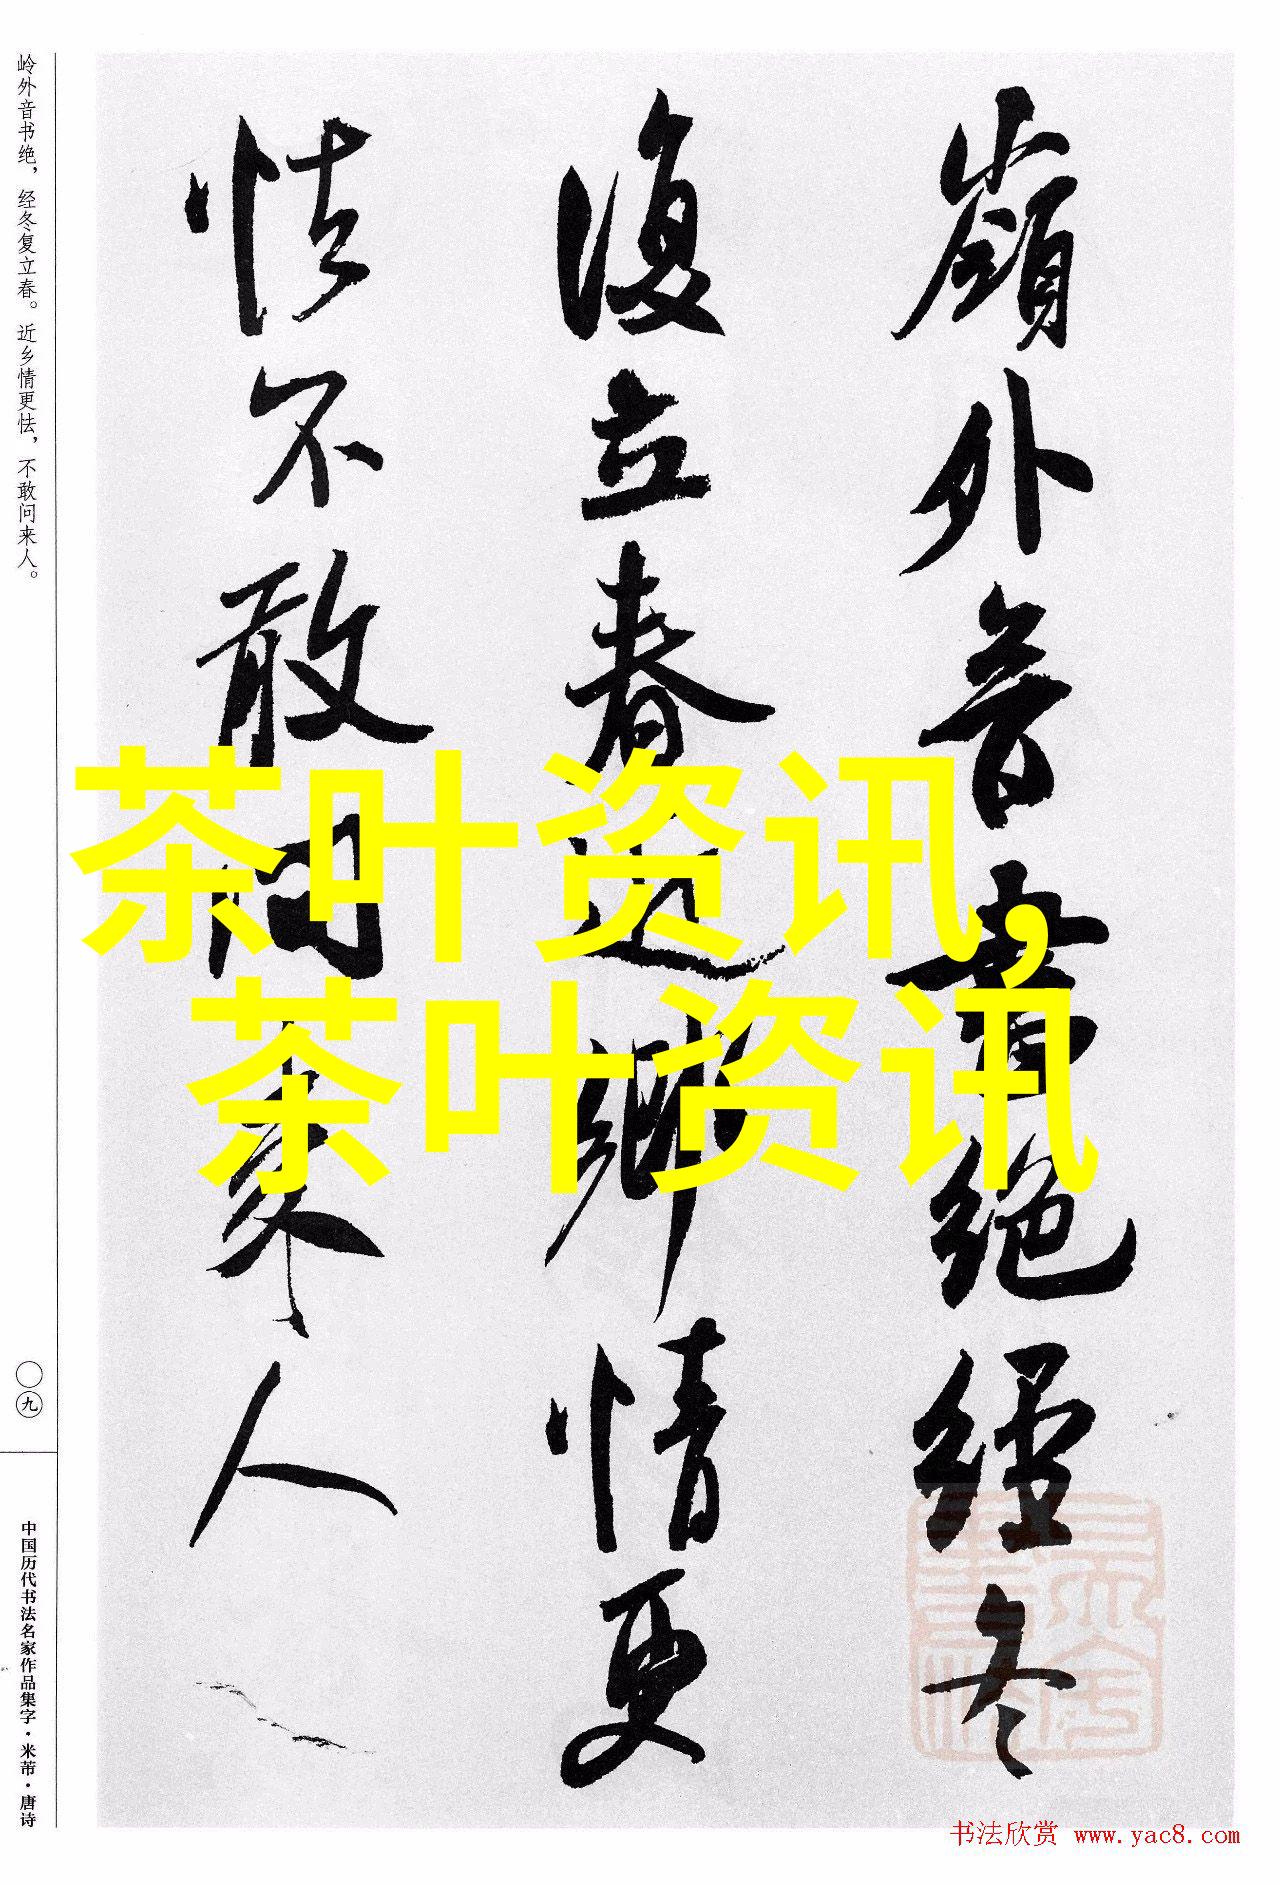 嶺外音書绝經冬
復立春近鄉情更
怯不敢问来人
岭外音书绝，经冬复立春。近乡情更怯，不敢问来人。
〇九
中国历代书法名家作品集字·米芾·唐诗
茶叶资讯,
茶叶资讯
书法欣赏 www.yac8.com